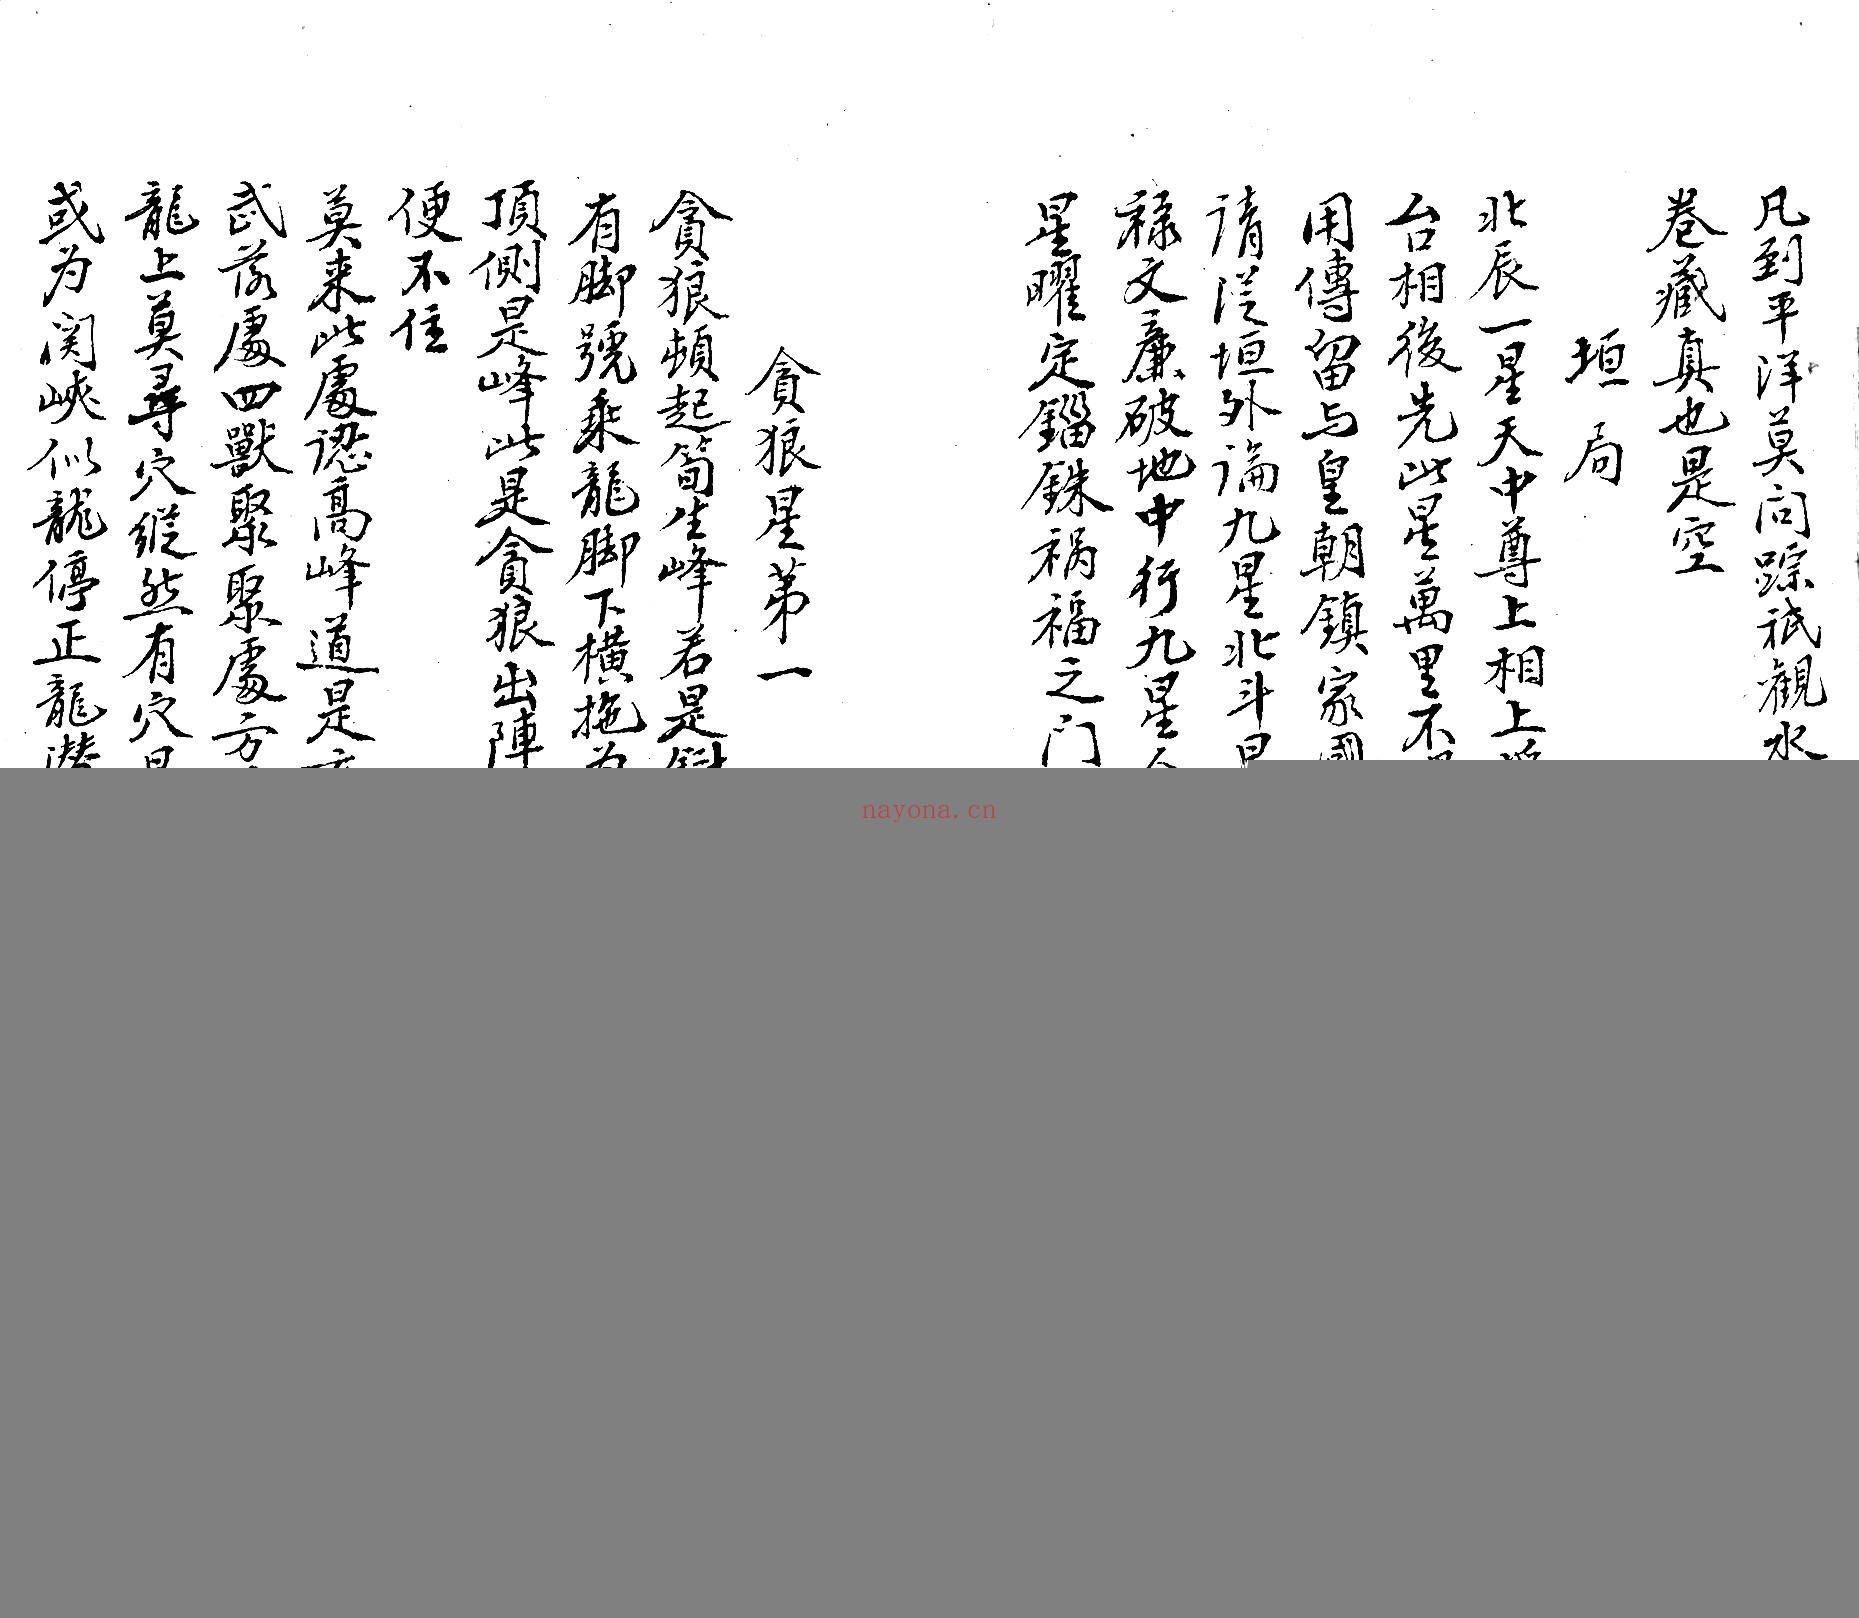 凡到平洋莫问踪祇觀水
卷藏真也是空
垣局
北辰一星天中尊上相上
台相後先此星萬里不
用傳留与皇朝鎮家國
请従垣外論九星北斗
禄文廉破地中行九星
星曜定錙銖祸福之门
貪狼星苐一
貪狼頓起筍生峰若是
有脚號乘龍脚下橫拖
頂側是峰此是貪狼出陣
便不住
莫来此處認高峰道是
武落處四獸聚聚處方
龍上莫尋穴縱然有穴
或为関峽似龍停正龍潜
nayona.cn